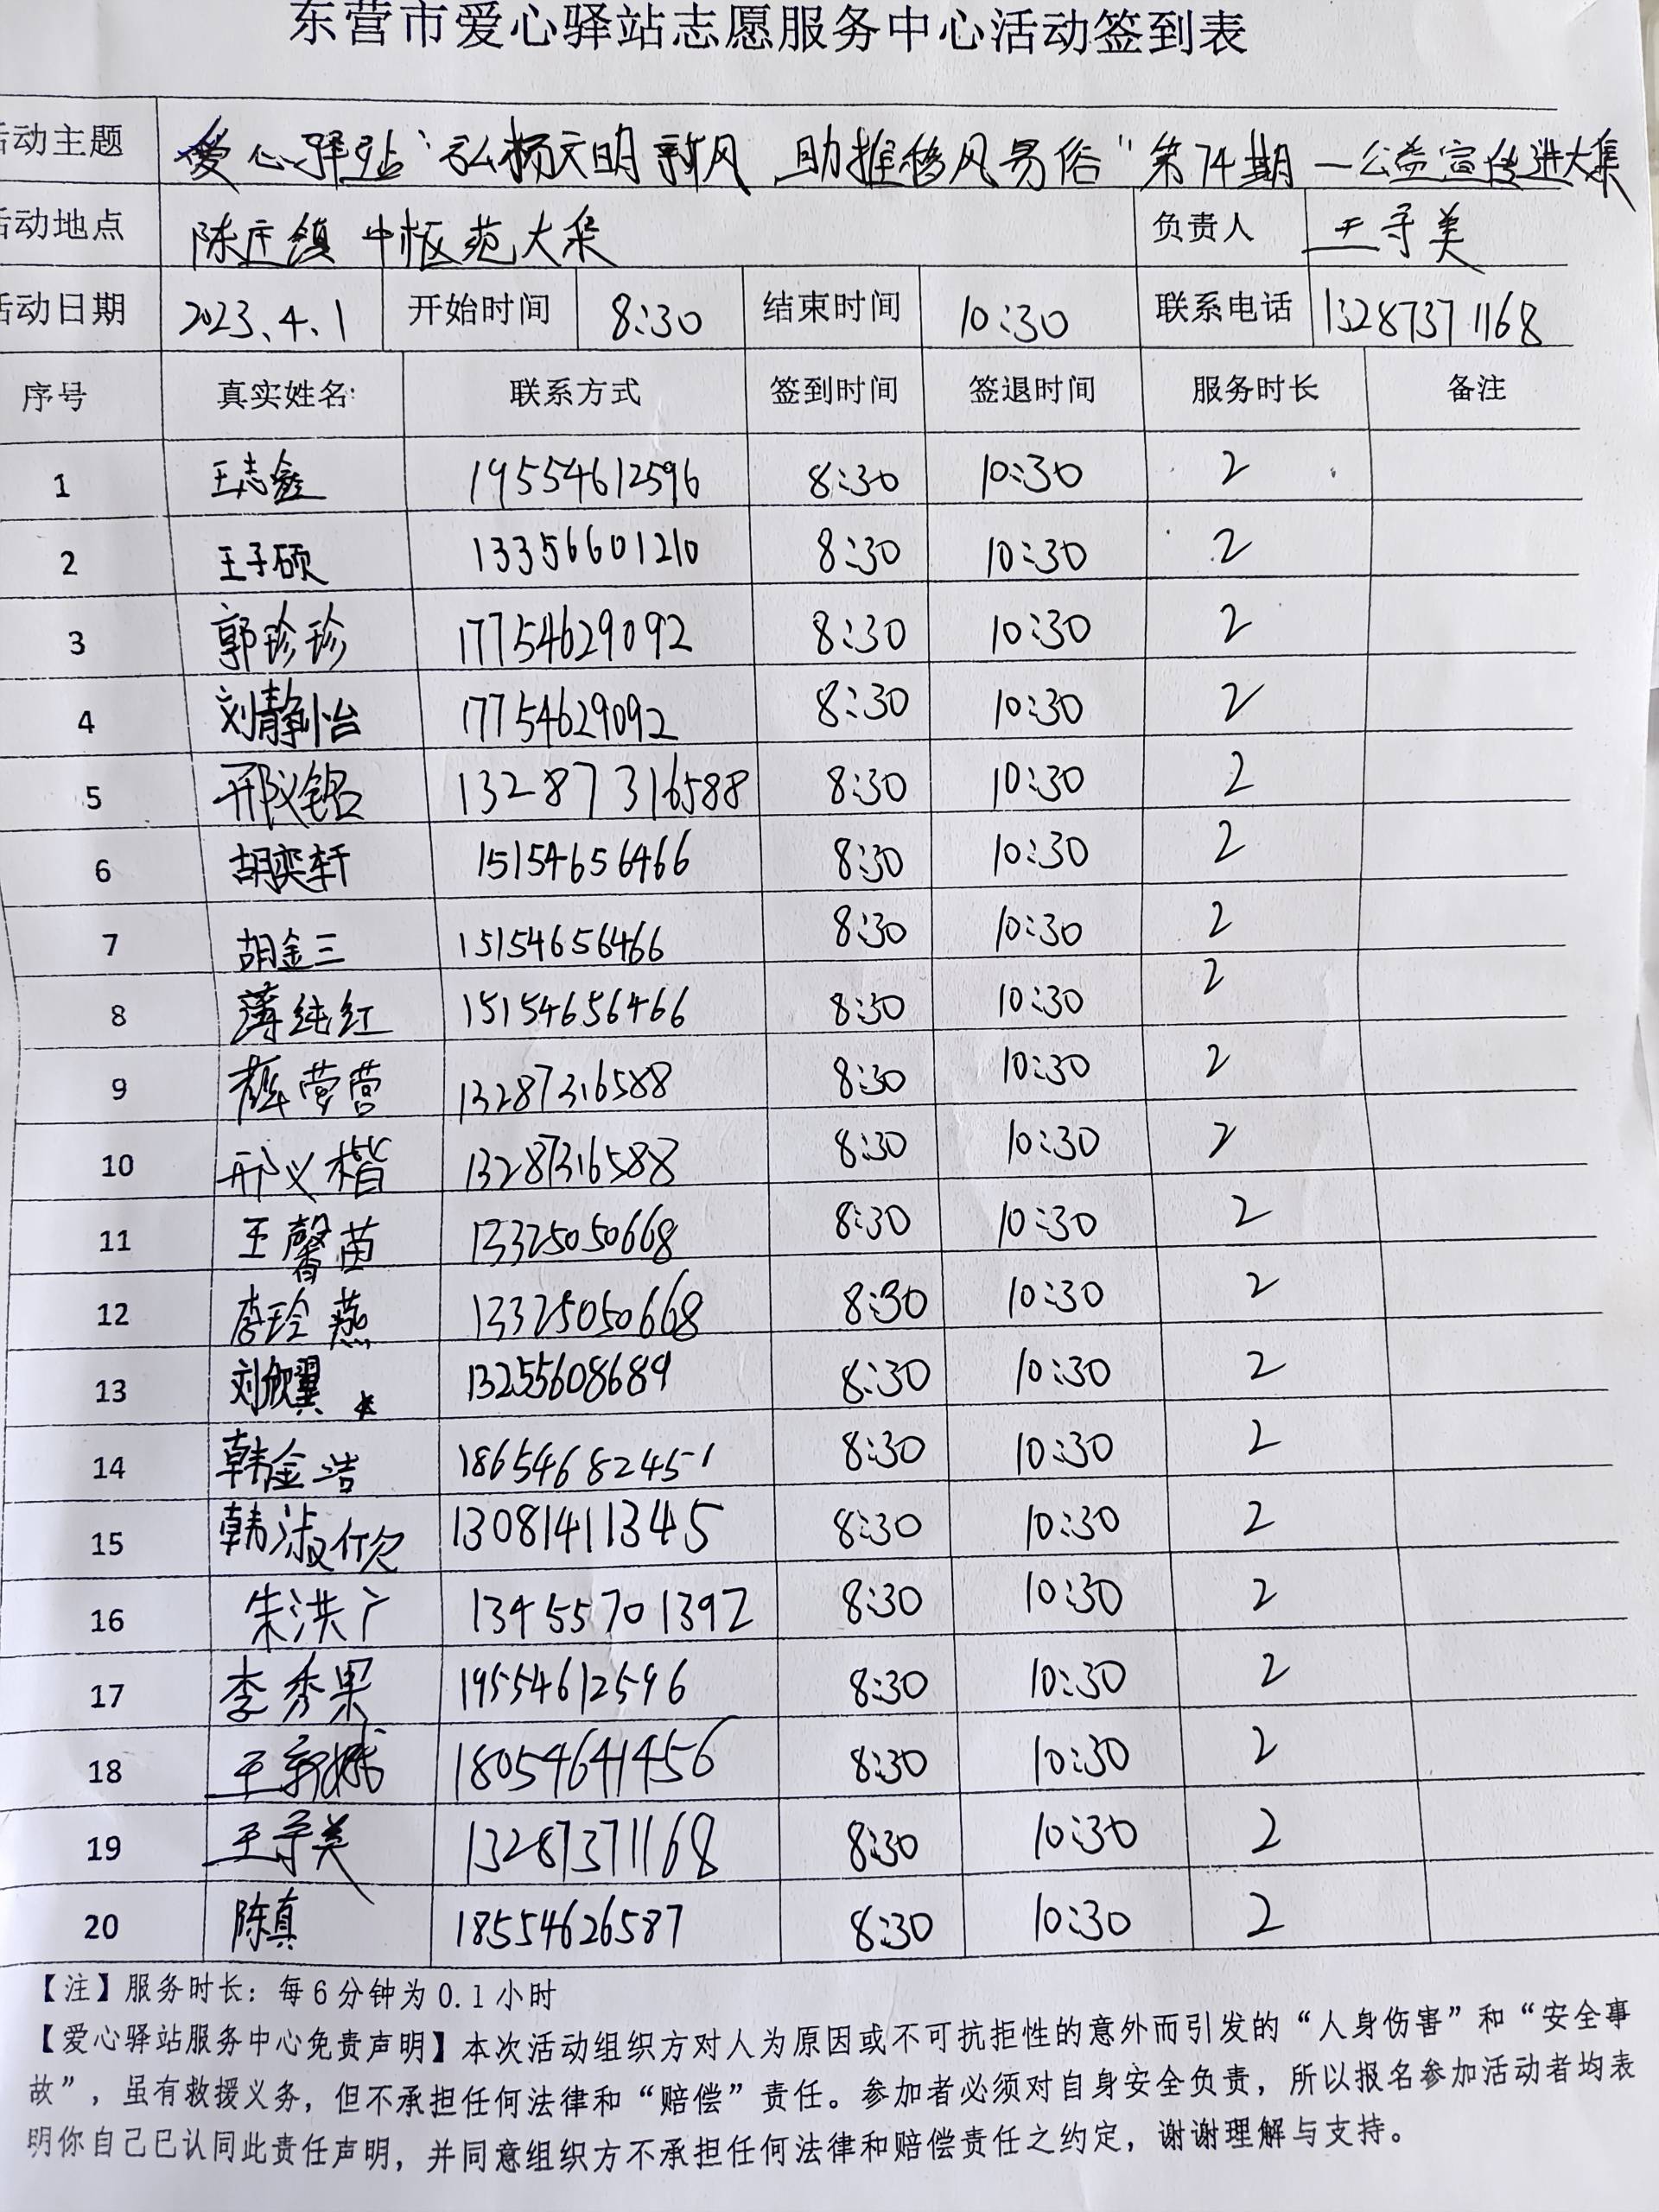 东营市爱心驿站志愿服务中心活动签到表
活动主题 爱心驿站“弘扬文明新风 助推移风易俗”第74期—公益宣传进大集
活动地点 陈庄镇中枢范大集 负责人 王守美
活动日期 2023.4.1 开始时间 8:30 结束时间 10:30 联系电话 13287371168
序号 真实姓名: 联系方式 签到时间 签退时间 服务时长 备注
1 王志鑫 19554612596 8:30 10:30 2
2 王子硕 13356601210 8:30 10:30 2
3 郭珍珍 17754629092 8:30 10:30 2
4 刘静怡 17754629092 8:30 10:30 2
5 邢义铭 13287316588 8:30 10:30 2
6 胡奕轩 15154656466 8:30 10:30 2
7 胡金三 15154656466 8:30 10:30 2
8 薄纯红 15154656466 8:30 10:30 2
9 营营 13287316588 8:30 10:30 2
10 邢义楷 13287316588 8:30 10:30 2
11 王馨苗 13325050668 8:30 10:30 2
12 李玲燕 13325050668 8:30 10:30 2
13 刘欣翼 13255608689 8:30 10:30 2
14 韩金浩 18654682451 8:30 10:30 2
15 韩淑欣 13081411345 8:30 10:30 2
16 朱洪广 13455701392 8:30 10:30 2
17 李秀果 19554612596 8:30 10:30 2
18 王新娥 18054641456 8:30 10:30 2
19 王守美 13287371168 8:30 10:30 2
20 陈真 18554626587 8:30 10:30 2
【注】服务时长：每6分钟为0.1小时
【爱心驿站服务中心免责声明】本次活动组织方对人为原因或不可抗拒性的意外而引发的“人身伤害”和“安全事
故”，虽有救援义务，但不承担任何法律和“赔偿”责任。参加者必须对自身安全负责，所以报名参加活动者均表
明你自己已认同此责任声明，并同意组织方不承担任何法律和赔偿责任之约定，谢谢理解与支持。